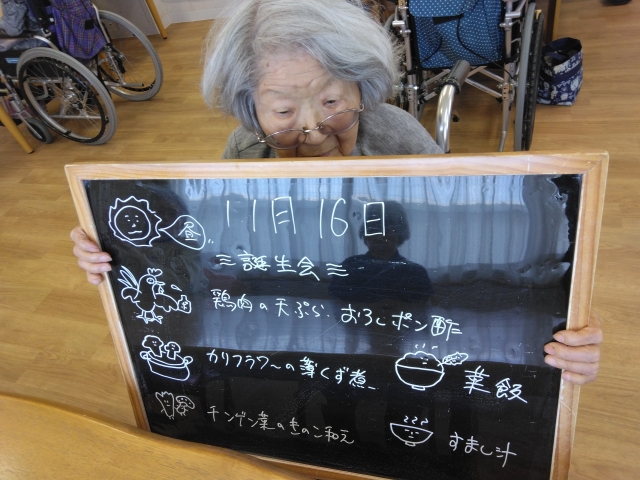 昼
11月16日
誕生会
鶏肉の天ぷら おろしポン酢
カリフラワーの薄くず煮
菜飯
チンゲン菜のきのこ和え
すまし汁